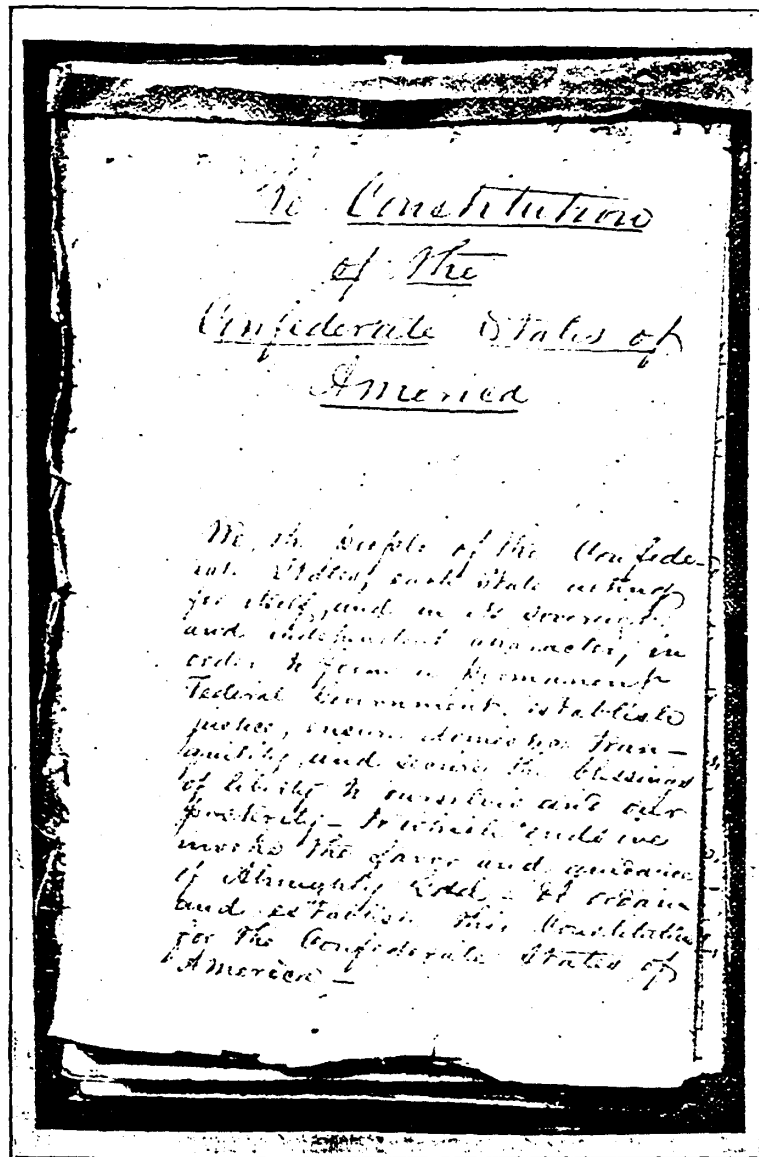 The Constitution
of the
Confederate States of
America
We, the people of the Confede-
rate States, each State acting
for itself, and in its sovereign
and independent character, in
order to form a permanent
Federal Government, establish
justice, ensure domestic tran-
quility, and secure the blessings
of liberty to ourselves and our
posterity – to which ends we
invoke the favor and guidance
of Almighty God – do ordain
and establish this Constitution
for the Confederate States of
America –